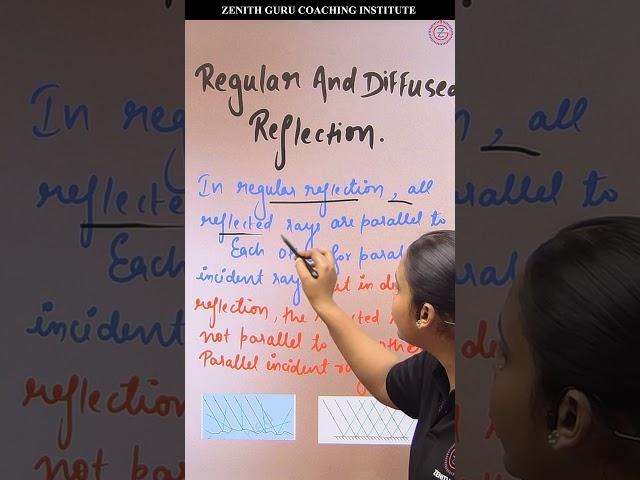 ZENITH GURU COACHING INSTITUTE
Regular And Diffused
Reflection.
In regular reflection, all
reflected rays are parallel to
Each for
incident in
reflection, the
not parallel to
Parallel incident
ZENITH